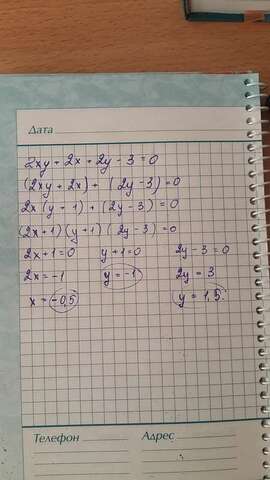 Дата
2xy + 2x + 2y - 3 = 0
(2xy + 2x) + (2y - 3) = 0
2x (y + 1) + (2y - 3) = 0
(2x+1) (y+1) (2y - 3) = 0
2x+1=0 y+1=0 2y-3=0
2x=-1 y=-1 2y=3
x=-0,5 y=1,5.
Телефон Адрес